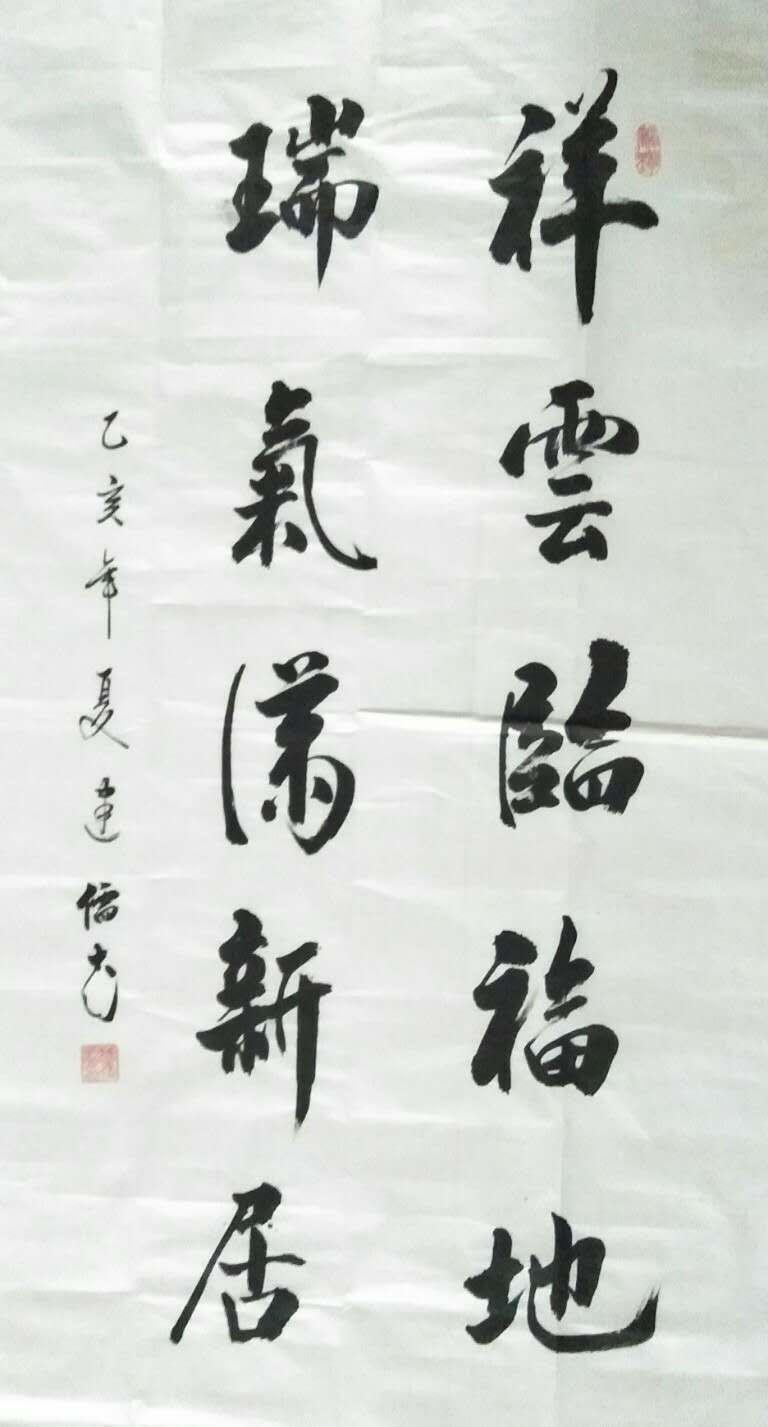 祥雲臨福地
瑞氣滿新居
乙亥年夏建